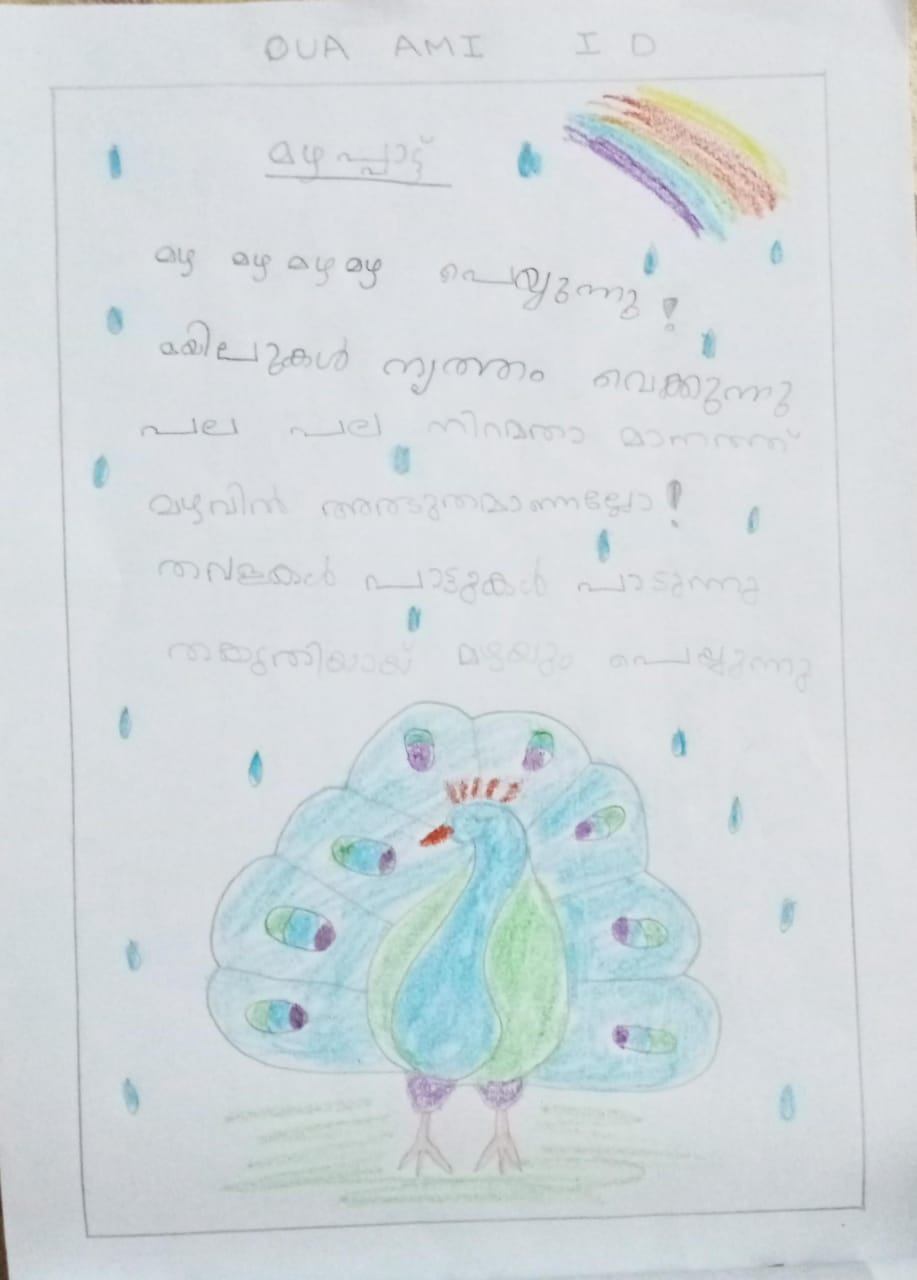 DUA AMI I D
മഴപ്പാട്ട്
മഴ മഴ മഴ മഴ പെയ്യുന്നു!
മയിലുകൾ നൃത്തം വെക്കുന്നു
പല പല നിറമതാ മാനത്ത്
മഴവിൻ അത്ഭുതമാണല്ലോ!
തവളകൾ പാട്ടുകൾ പാടുന്നു
തകൃതിയായ് മഴയും പെയ്യുന്നു